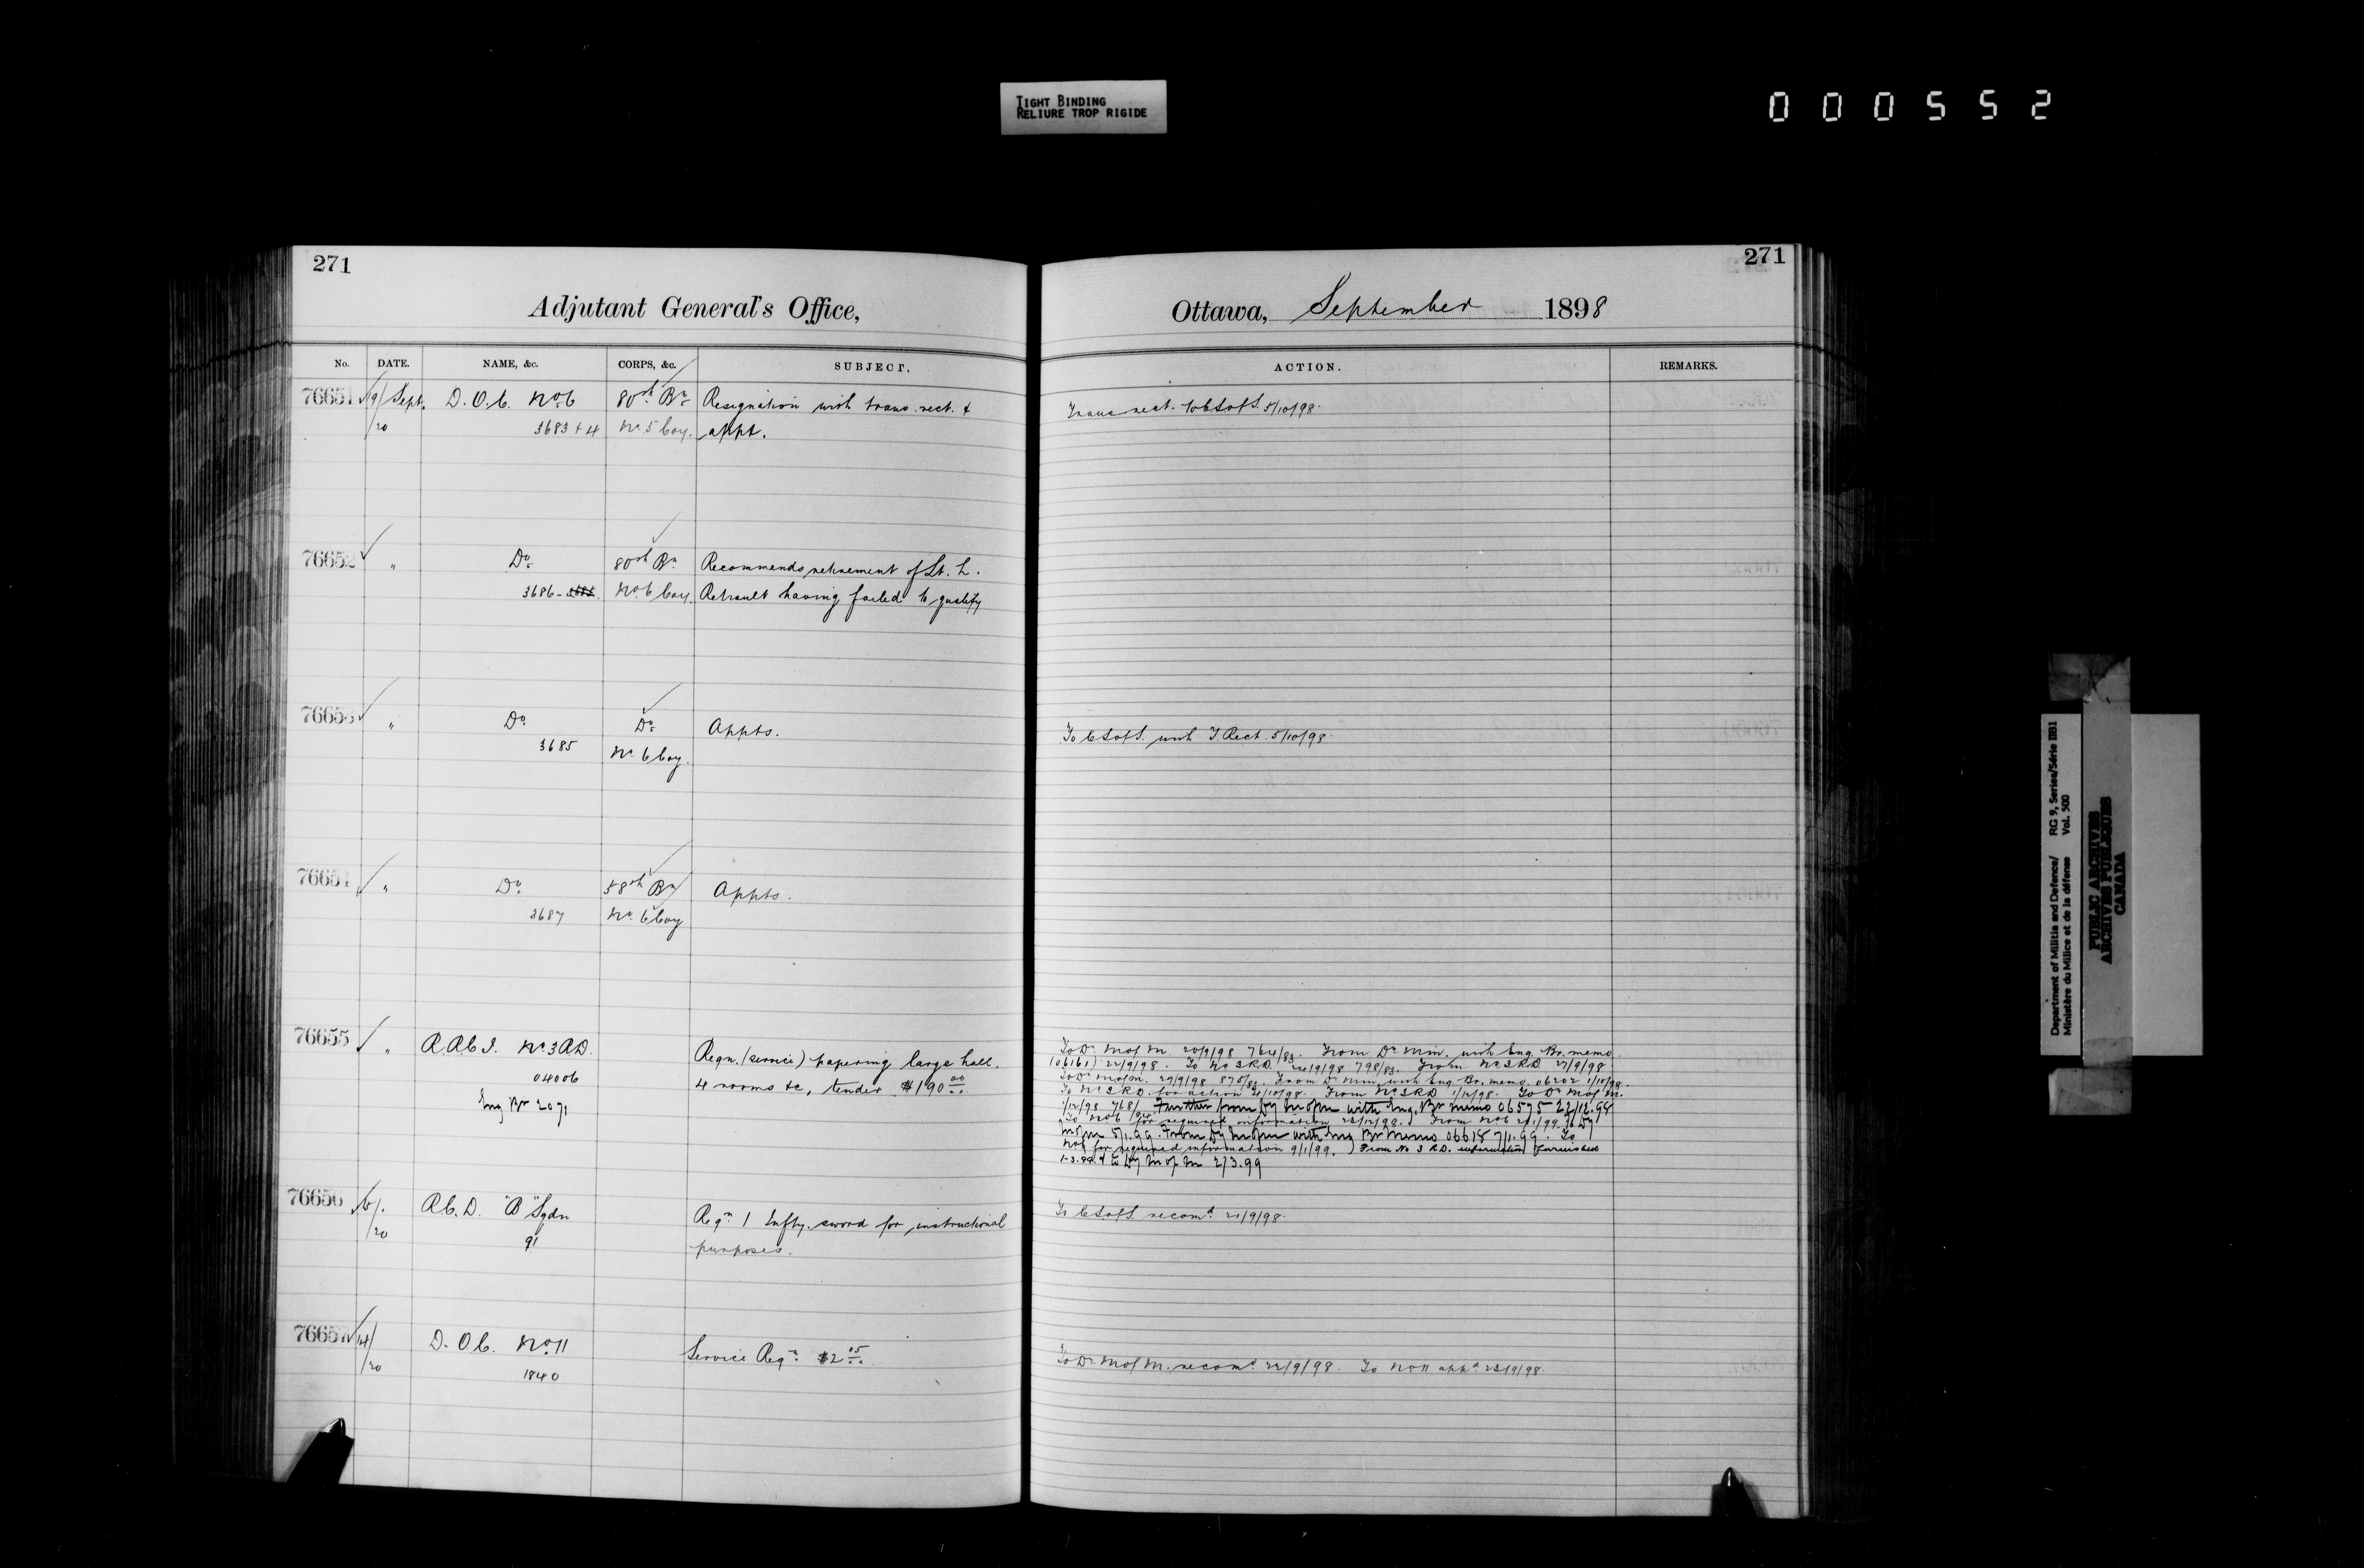 TIGHT BINDING
RELIURE TROP RIGIDE
000552
271
Adjutant General's Office,
No. DATE. NAME, &c. CORPS, &c. SUBJECT.
76651 19/Sept. D.O.C. No 6 80th Bn Resignation with trans. rect. &
/20 3683 + 4 No 5 Coy. appt.
76652 " Do 80th Bn Recommends retirement of Lt. L.
3686 - No 6 Coy. having failed to qualify
7665 " Do Do Appts.
3685 No 6 Coy.
7665 " Do 58th Bn Appts.
3687 No 6 Coy
76655 " R.R.C.I. No 3 R.D. Reqn. (service) papering large hall.
04006 4 rooms &c, tender $190 00
Eng Br 2071
76656 R.C.D. "B" Sqdn Reqn 1 Infty. sword for instructional
/20 91 purposes.
76657 D.O.C. No 11 Service Reqn $2 05
/20 1840
271
Ottawa, September 1898
ACTION. REMARKS.
Trans rect. to C S of S. 5/10/98.
To C S of S. with T Rect. 5/10/98
To Dy M of M 20/9/98 764/83. From Dy Min. with Eng. Br. memo
(06161) 22/9/98. To No 3 R.D. 24/9/98 798/83. From No 3 R.D. 27/9/98
To Dy M of M. 29/9/98 875/83. From Dy Min. with Eng. Br. memo. 06202 1/10/98.
To No 3 R.D. for action 4/10/98. From No 3 R D 1/12/98. To Dy M of M.
1/12/98 768/ from Dy M of M with Eng. Br memo 06575 22/12.98
To No 6 for required information 23/12/98. From No 6 1/99. To Dy
M of M 5/1.99. From Dy M of M with Eng Br Memo 06618 7/1.99. To
No 6 for required information 9/1/99. From No 3 R D. information furnished
1-3.99 & to Dy M of M 2/3.99
To C S of S. recomd 21/9/98.
To Dy M of M. recomd 22/9/98. To No 11 appd 23/9/98.
Department of Militia and Defence/ RG 9, Series/Série IIB1
Ministère du Milice et de la défense Vol. 500
PUBLIC ARCHIVES
ARCHIVES PUBLIQUES
CANADA